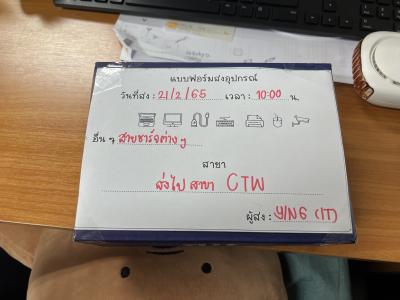 แบบฟอร์มส่งอุปกรณ์
วันที่ส่ง : 21/2/65 เวลา : 10:00 น.
อื่น ๆ สายชาร์จต่าง ๆ
สาขา
ส่งไป สาขา CTW
ผู้ส่ง : YING (IT)